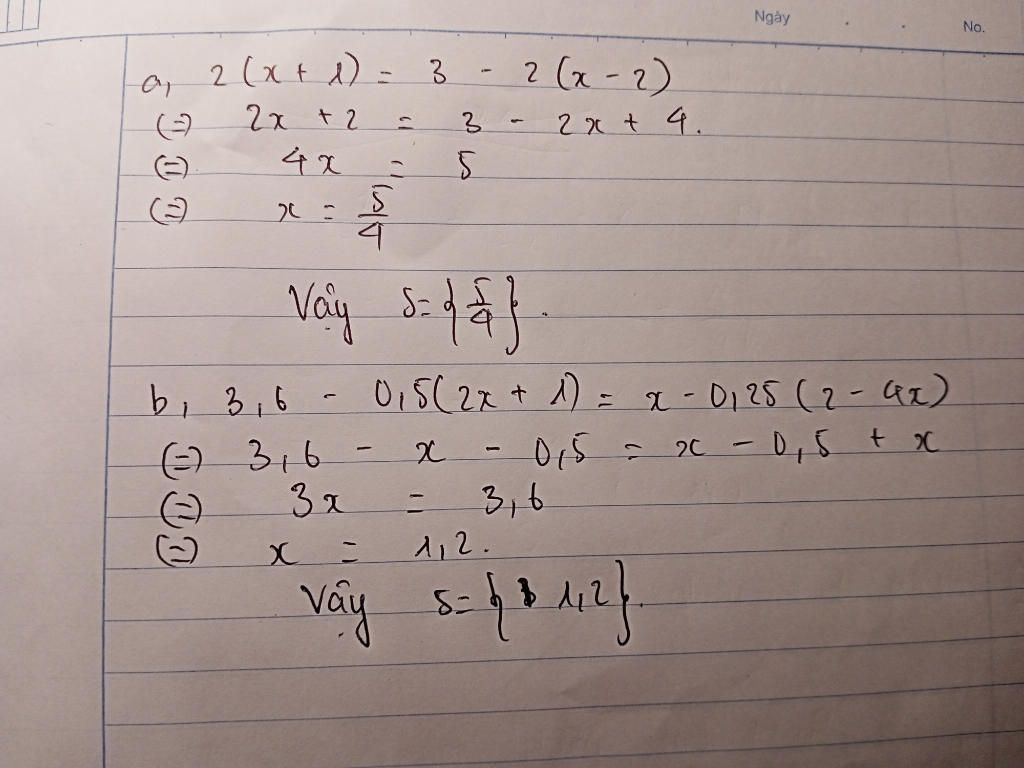 Ngày . . No.
a, 2(x + 1) = 3 - 2(x - 2)
(=) 2x + 2 = 3 - 2x + 4.
(=) 4x = 5
(=) x = 5/4
Vậy S = {5/4}.
b, 3,6 - 0,5(2x + 1) = x - 0,25(2 - 4x)
(=) 3,6 - x - 0,5 = x - 0,5 + x
(=) 3x = 3,6
(=) x = 1,2.
Vậy S = {1,2}.